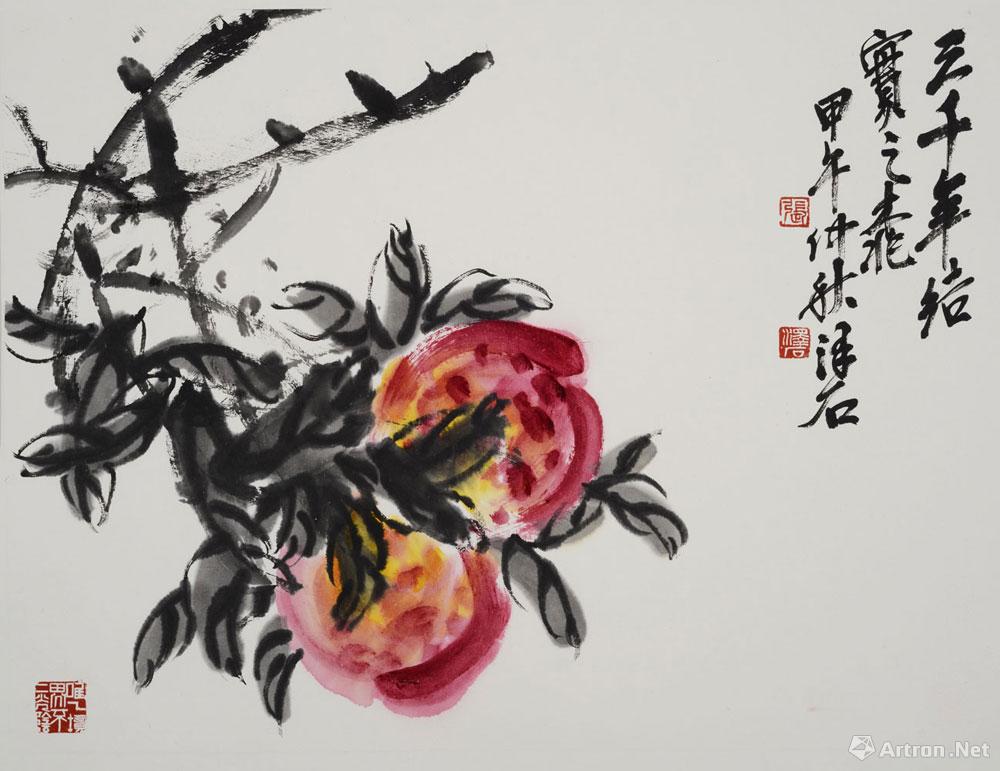 三千年结
實之桃
甲午仲秋泽石
張
澤
Artron.Net